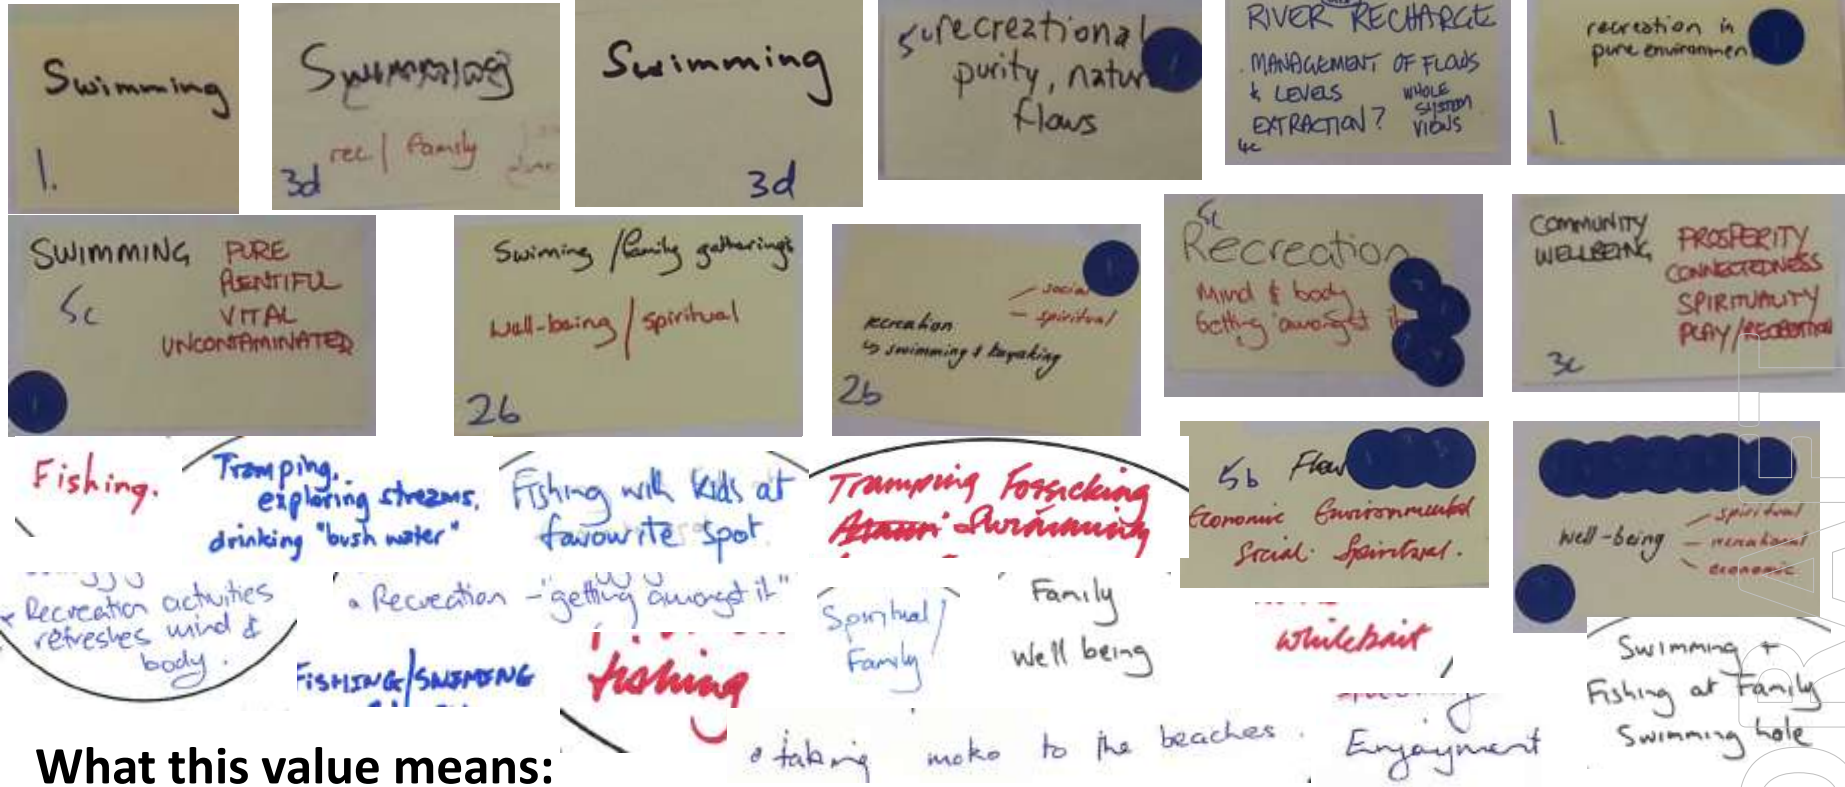 Swimming
1.
Swimming
rec / family
3d
Swimming
3d
5c recreational
purity, natur
flows
RIVER RECHARGE
MANAGEMENT OF FLOWS
& LEVELS
EXTRACTION?
WHOLE
SYSTEM
VIEWS
4c
recreation in
pure environmen
1.
SWIMMING
5c
PURE
PLENTIFUL
VITAL
UNCONTAMINATED
Swiming / family gatherings
well-being / spiritual
2b
recreation
↳ swimming & kayaking
social
spiritual
2b
5c
Recreation
Mind & body
Getting amongst it
COMMUNITY
WELLBEING
PROSPERITY
CONNECTEDNESS
SPIRITUALITY
PLAY/RECREATION
3c
Fishing.
Tramping,
exploring streams,
drinking "bush water"
Fishing with kids at
favourite spot.
Tramping Fossicking
Swimming
5b Flow
Economic Environmental
Social. Spiritual.
well-being
spiritual
recreational
economic
Recreation activities
refreshes mind &
body.
Recreation - "getting amongst it"
FISHING/SWIMING
fishing
Spiritual/
Family
Family
Well being
whitebait
Swimming +
Fishing at Family
Swimming hole
taking moko to the beaches.
Enjoyment
What this value means:
DRAFT